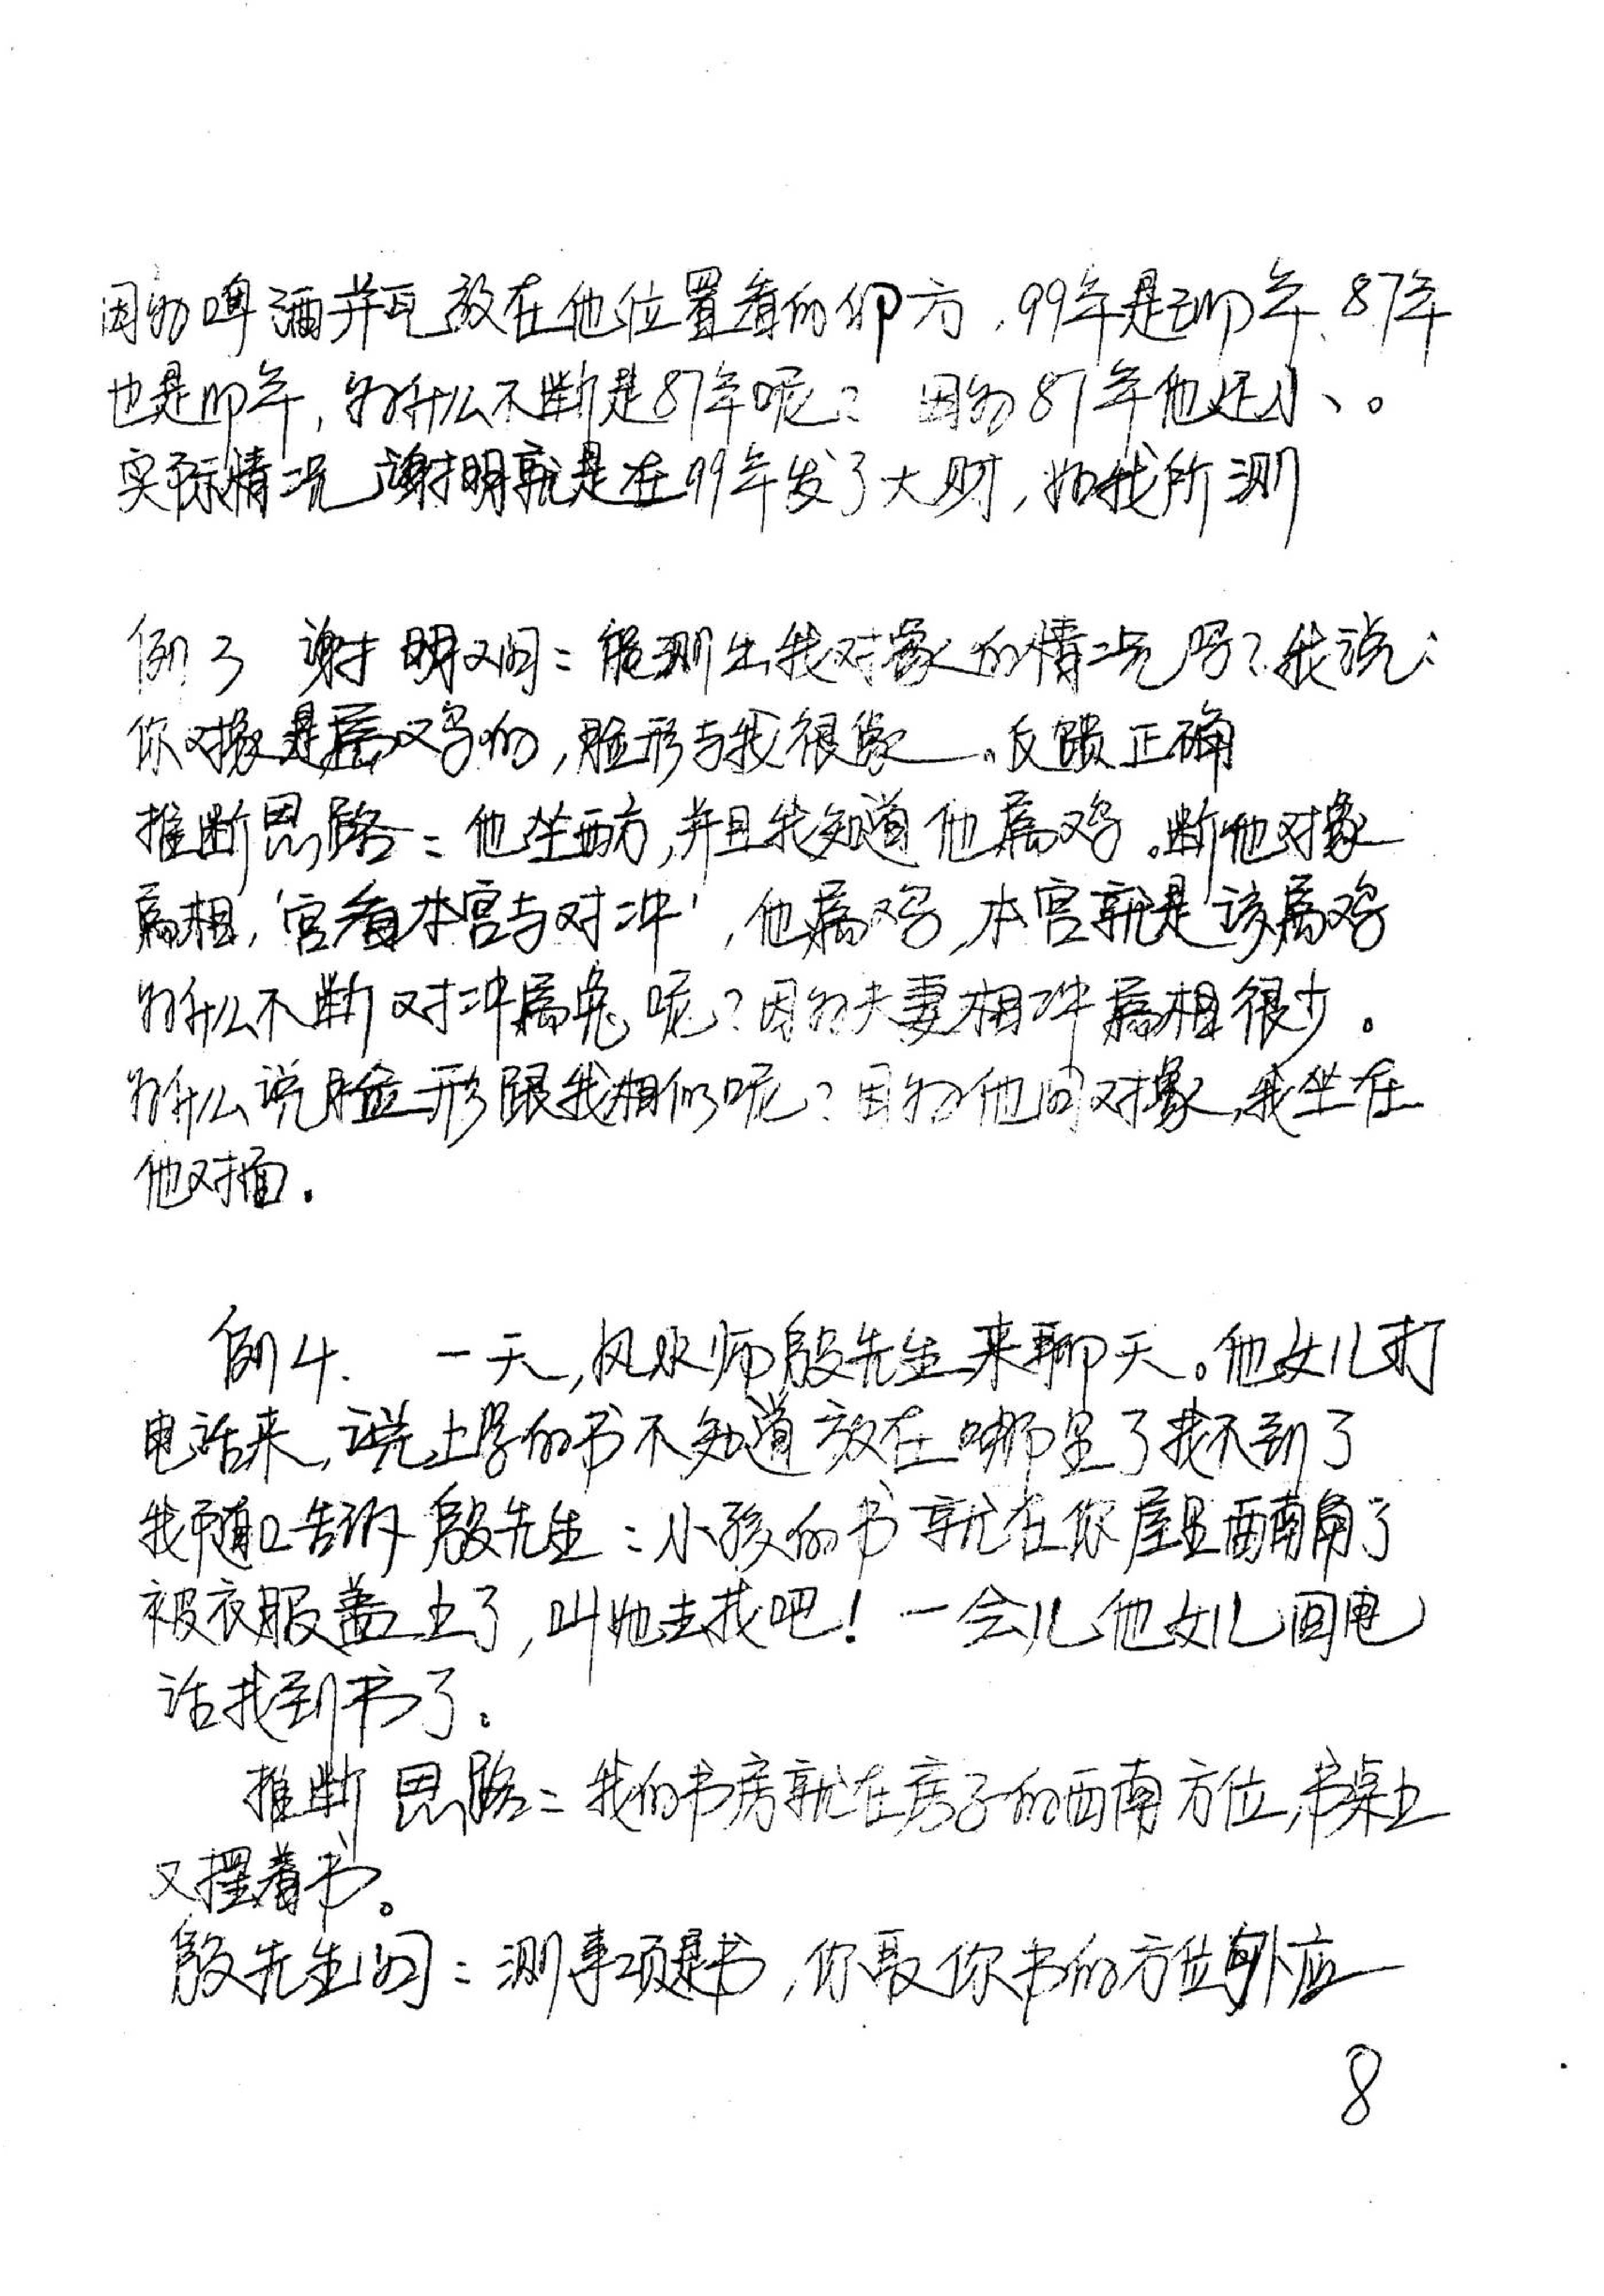 因为啤酒瓶放在他位置看的卯方,99年是卯年、87年
也是卯年,为什么不断是87年呢?因为87年他还小、。
实际情况 谢明就是在99年发了大财,如我所测
例3 谢明又问:能测出我对象的情况吗?我说:
你对象是属鸡的,脸形与我很象。反馈正确
推断思路:他坐西方,并且我知道他属鸡。断他对象
属相,'宫看本宫与对冲',他属鸡,本宫就是该属鸡
为什么不断对冲属兔呢?因为夫妻相冲属相很少。
为什么说脸形跟我相似呢?因为他问对象,我坐在
他对面.
例4. 一天,风水师殷先生来聊天。他女儿打
电话来,说上学的书不知道放在哪里了找不到了
我随口告诉殷先生:小孩的书就在你屋里西南角了
被衣服盖上了,叫她去找吧!一会儿他女儿回电
话找到书了。
推断思路:我的书房就在房子的西南方位,书桌上
又摆着书。
殷先生问:测事项是书,你取你书的方位外应
8